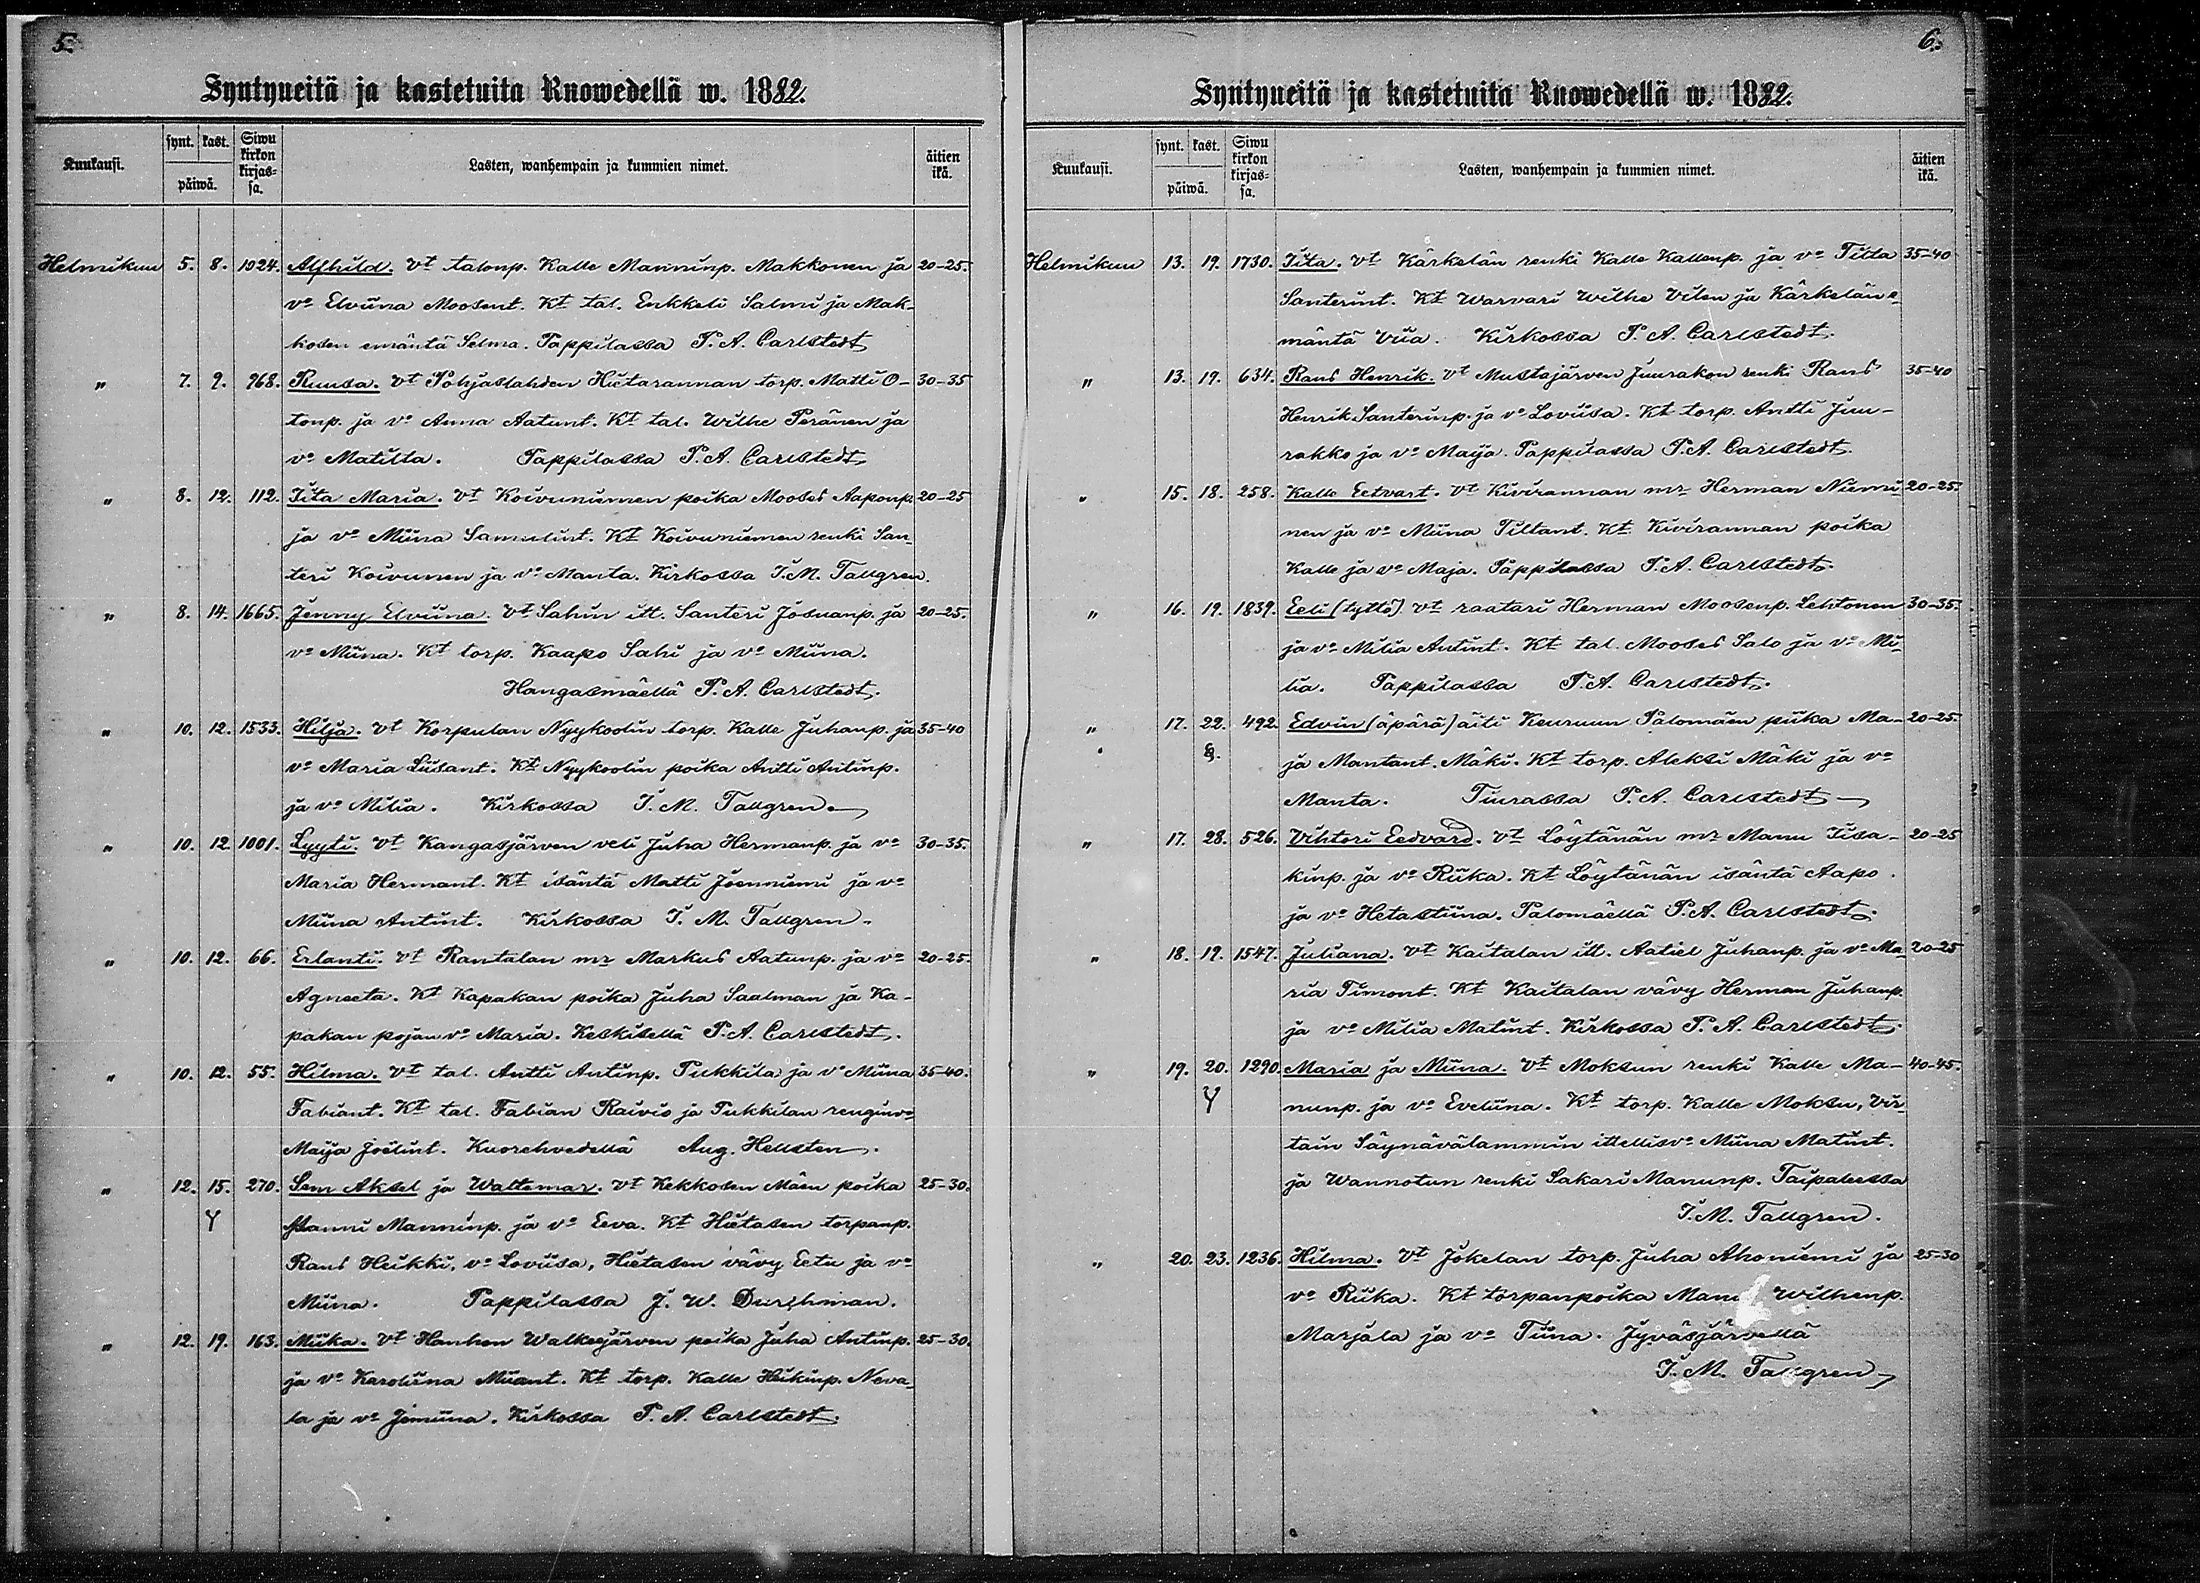 5.
Syntyneitä ja kastetuita Ruowedellä w. 1882.
Kuukausi. synt. kast. päiwä. Siwu kirkon kirjas=sa. Lasten, wanhempain ja kummien nimet. äitien ikä.
Helmikuu 5. 8. 1024. Alfhild. Vt talonp. Kalle Manninp. Makkonen ja 20-25.
vo Elviina Moosent. Kt tal. Enkkeli Salmi ja Mak-
kosen emäntä Selma. Pappilassa P. A. Carlstedt
" 7. 9. 968. Ruusa. Vt Pohjaslahden Hietarannan torp. Matti O- 30-35
tonp. ja vo Anna Aatunt. Kt tal. Wilhe Peränen ja
vo Matilta. Pappilassa P. A. Carlstedt
" 8. 12. 112. Iita Maria. Vt Koivuniemen poika Mooses Aaponp. 20-25
ja vo Miina Samulint. Kt Koivuniemen renki San-
teri Koivunen ja vo Manta. Kirkossa I. M. Tallgren.
" 8. 14. 1665. Jenny Elviina. Vt Sahin itt. Santeri Josuanp. ja 20-25.
vo Miina. Kt torp. Kaapo Sahi ja vo Miina.
Hangasmäellä P. A. Carlstedt.
" 10. 12. 1533. Hilja. Vt Korpulan Nyykoolin torp. Kalle Juhanp. ja 35-40
vo Maria Liisant. Kt Nyykoolin poika Antti Antinp.
ja vo Milia. Kirkossa I. M. Tallgren.
" 10. 12 1001. Lyyti. Vt Kangasjärven veli Juha Hermanp. ja vo 30-35.
Maria Hermant. Kt isäntä Matti Joenniemi ja vo
Miina Antint. Kirkossa I. M. Tallgren.
" 10. 12. 66. Erlanti. Vt Rantalan mr Markus Aatunp. ja vo 20-25.
Agneeta. Kt Kapakan poika Juha Saalman ja Ka-
pakan pojan vo Maria. Keskisellä P. A. Carlstedt.
" 10. 12. 55. Hilma. Vt tal. Antti Antinp. Pukkila ja vo Miina 35-40.
Fabiant. Kt tal. Fabian Raivio ja Pukkilan rengin vo
Maija Joelint. Kuorehvedellä Aug. Hellsten.
" 12. 15. 270. Sem Aksel ja Waltemar. Vt Kekkosen Mäen poika 25-30.
Y Manni Manninp. ja vo Eeva. Kt Hietasen torpanp.
Rans Heikki, vo Loviisa, Hietasen vävy Eetu ja vo
Miina. Pappilassa J. W. Durchman.
" 12. 19. 163. Miika. Vt Hanhon Walkeejärven poika Juha Antinp. 25-30.
ja vo Karoliina Miiant. Kt torp. Kalle Heikinp. Neva-
la ja vo Jemiina. Kirkossa P. A. Carlstedt.
6.
Syntyneitä ja kastetuita Ruowedellä w. 1882.
Kuukausi. synt. kast. päiwä. Siwu kirkon kirjas=sa. Lasten, wanhempain ja kummien nimet. äitien ikä.
Helmikuu 13. 19. 1730. Iita. Vt Kärkelän renki Kalle Kallenp. ja vo Tilta 35-40
Santerint. Kt Warvari Wilhe Vilen ja Kärkelän e-
mäntä Viia. Kirkossa P. A. Carlstedt.
" 13. 19. 634. Rans Henrik. Vt Mustajärven Juurakon renki Rans 35-40
Henrik Santerinp. ja vo Loviisa. Kt torp. Antti Juu-
rakko ja vo Maija. Pappilassa P. A. Carlstedt.
" 15. 18. 258. Kalle Eetvart. Vt Kivirannan mr Herman Niemi- 20-25.
nen ja vo Miina Tiltant. Kt Kivirannan poika
Kalle ja vo Maja. Pappilassa P. A. Carlstedt.
" 16. 19. 1839. Eeli (tyttö) Vt raatari Herman Moosenp. Lehtonen 30-35.
ja vo Milia Antint. Kt tal. Mooses Salo ja vo Mi-
lia. Pappilassa P. A. Carlstedt.
" 17. 22. 492. Edvin (äpärä) äiti Keuruun Palomäen piika Ma- 20-25.
ja Mantant. Mäki. Kt torp. Aleksi Mäki ja vo
Manta. Tiurassa P. A. Carlstedt
" 17. 28. 526. Vihtori Eedvard. Vt Löytänän mr Manu Iisa- 20-25
kinp. ja vo Riika. Kt Löytänän isäntä Aapo
ja vo Hetastiina. Palomäellä P. A. Carlstedt.
" 18. 19. 1547. Juliana. Vt Kaitalan itt. Aatiel Juhanp. ja vo Ma- 20-25
ria Timont. Kt Kaitalan vävy Herman Juhanp.
ja vo Milia Matint. Kirkossa P. A. Carlstedt.
" 19. 20. 1290. Maria ja Miina. Vt Moksun renki Kalle Ma- 40-45.
Y nunp. ja vo Eveliina. Kt torp. Kalle Moksu, Vir-
tain Säynävälammin ittellis vo Miina Matint.
ja Wannotun renki Sakari Manunp. Taipaleessa
I. M. Tallgren.
" 20. 23. 1236. Hilma. Vt Jokelan torp. Juha Ahoniemi ja 25-30
vo Riika. Kt torpanpoika Wilhenp.
Marjala ja vo Tiina. Jyväsjärvellä
I. M. Tallgren